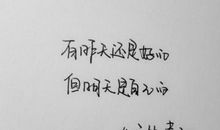 有昨天还是好的
但明天是自己的